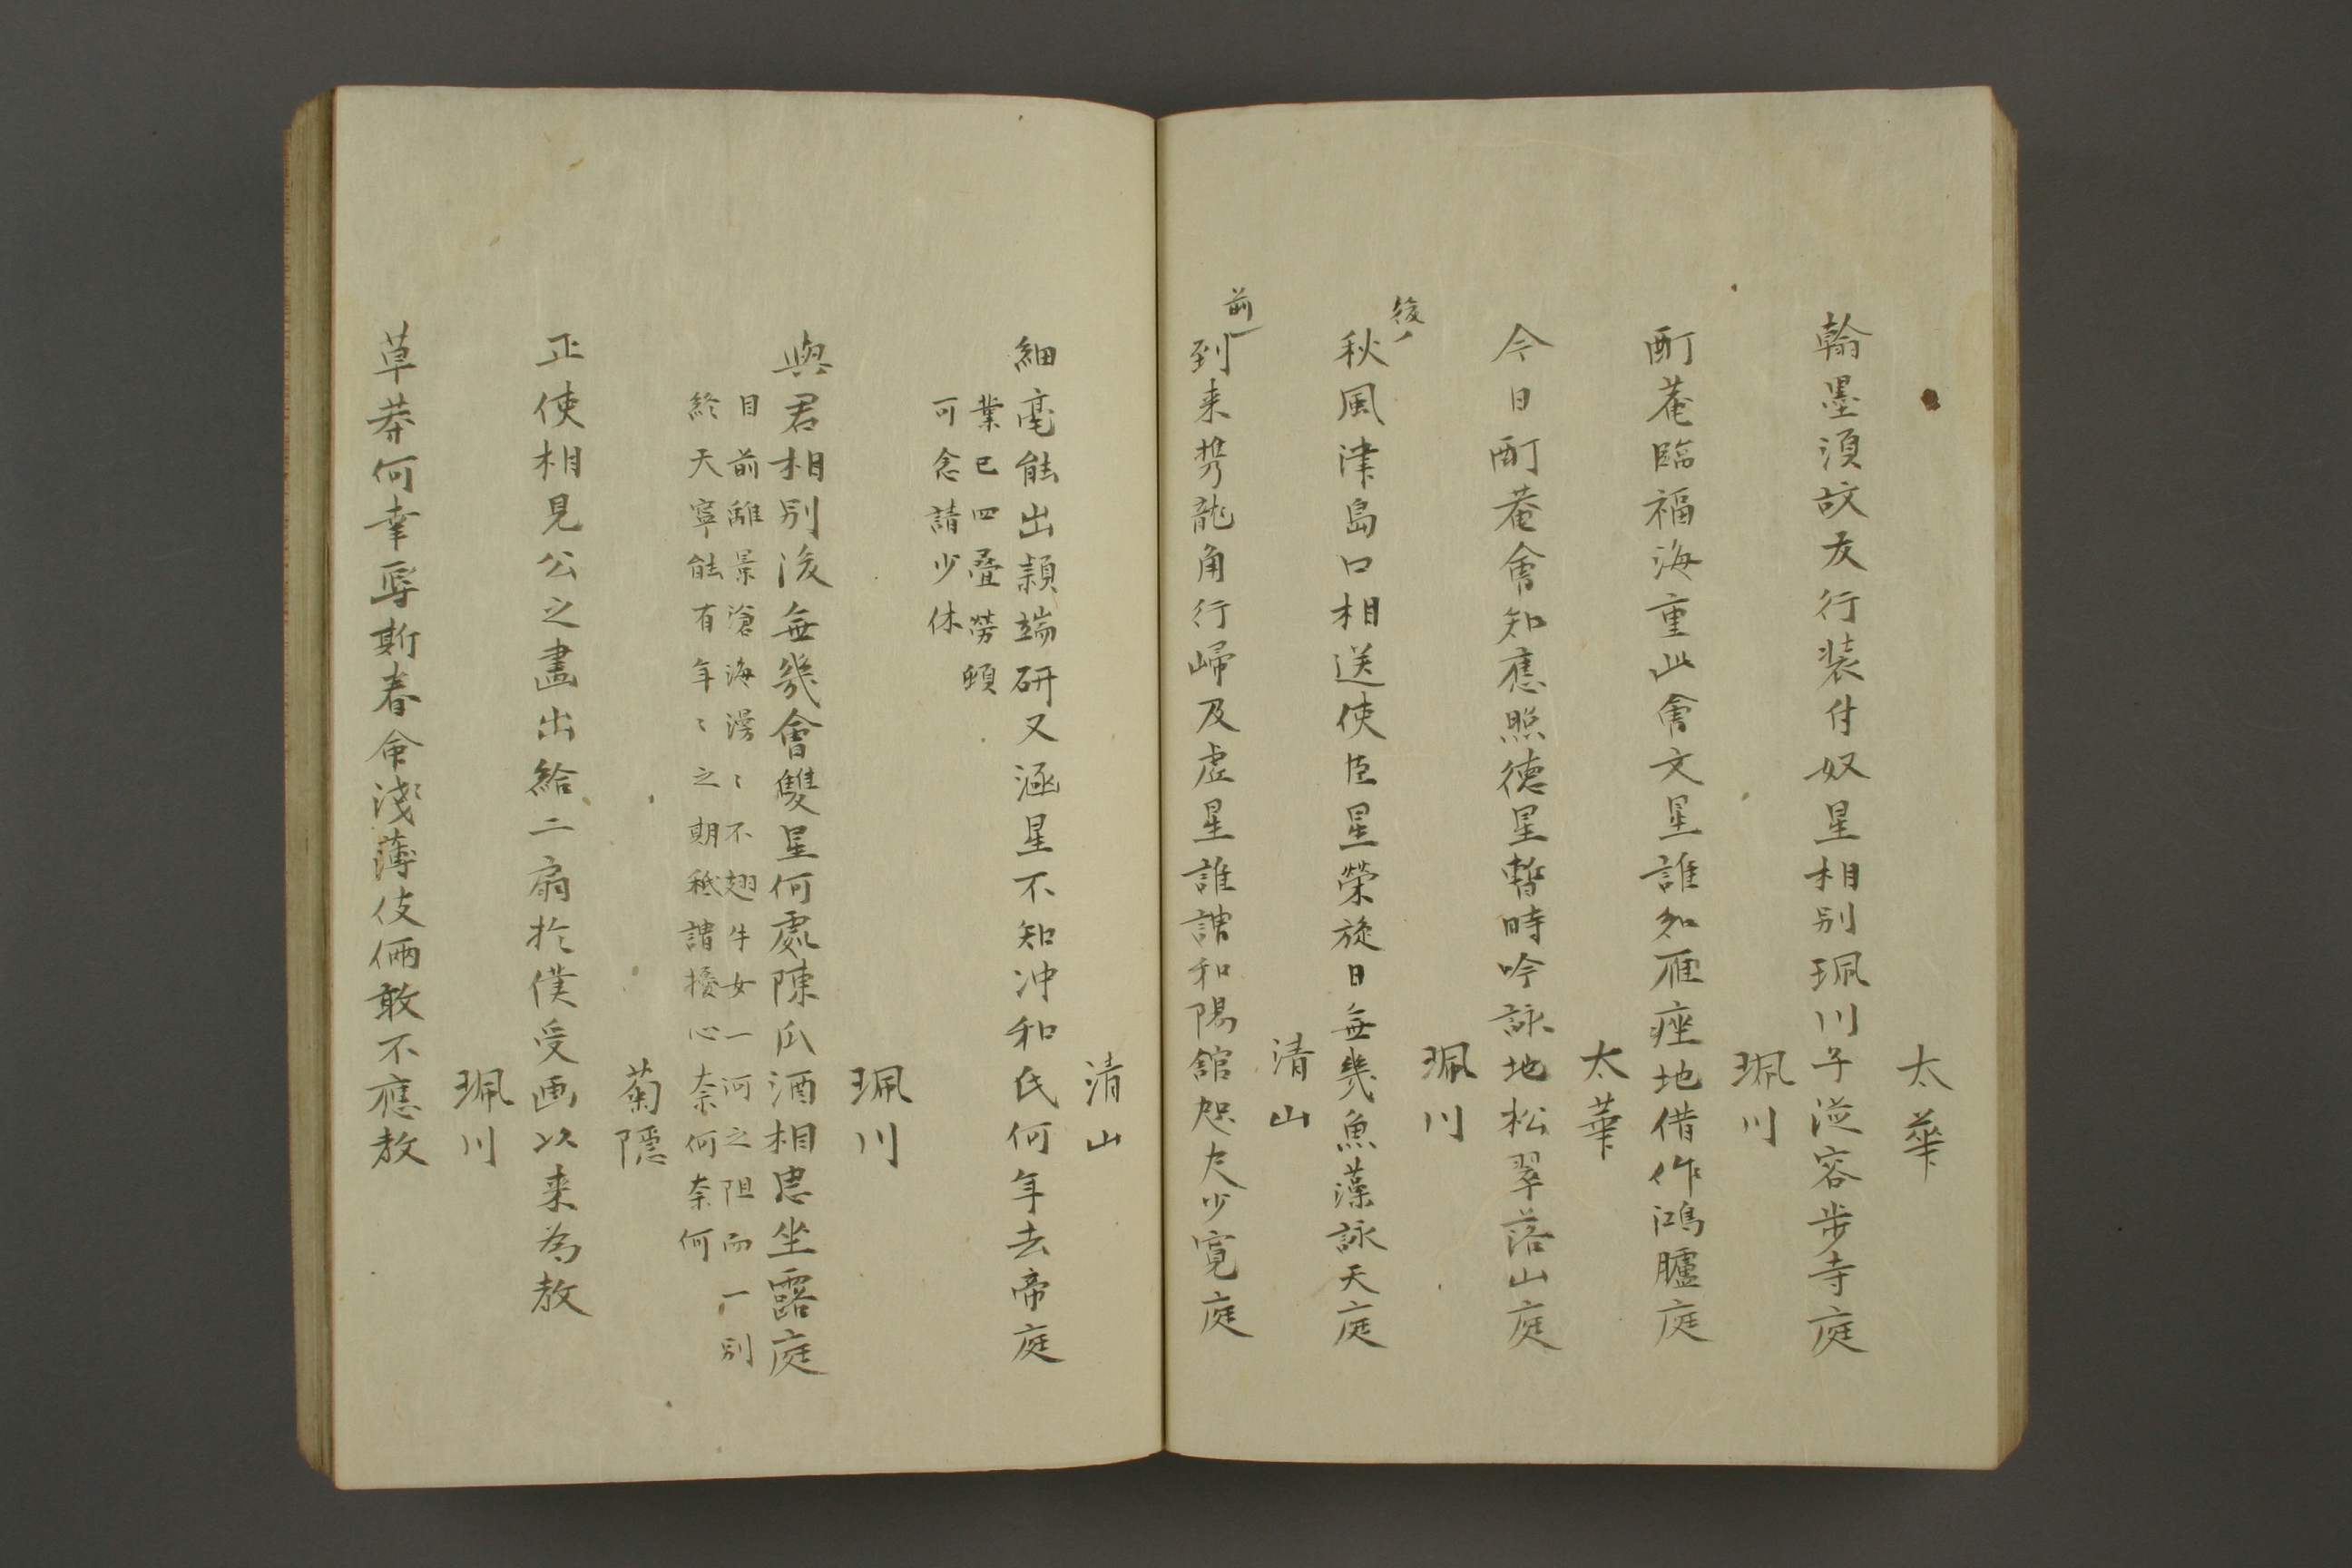 太華
翰墨須故友行装付奴星相別珮川子従容步寺庭
珮川
酊菴臨福海重此會文星誰知雁痊地借作鴻臚庭
太華
今日酊菴會知應照德星暫時吟詠地松翠落山庭
珮川
後
秋風津島口相送使臣星榮旋日無幾魚藻詠天庭
清山
前
到来携龍角行帰及虚星誰謂和陽舘咫尺少寛庭
清山
細毫能出頴端研又涵星不知冲和氏何年去帝庭
業已四疊勞頓
可念請少休
珮川
與君相別後無幾會雙星何處陳瓜酒相思坐露庭
目前離景滄海漫〻不翅牛女一河之阻而一別
終天寧能有年〻之期秖謂擾心奈何奈何
菊隱
正使相見公之畵出給二扇扵僕受画以来為教
珮川
草莽何幸辱斯眷命淺薄伎倆敢不應教